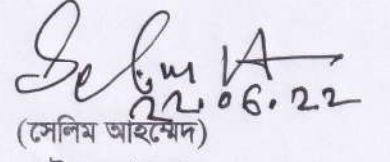 Selim A
22.06.22
(সেলিম আহম্মেদ)